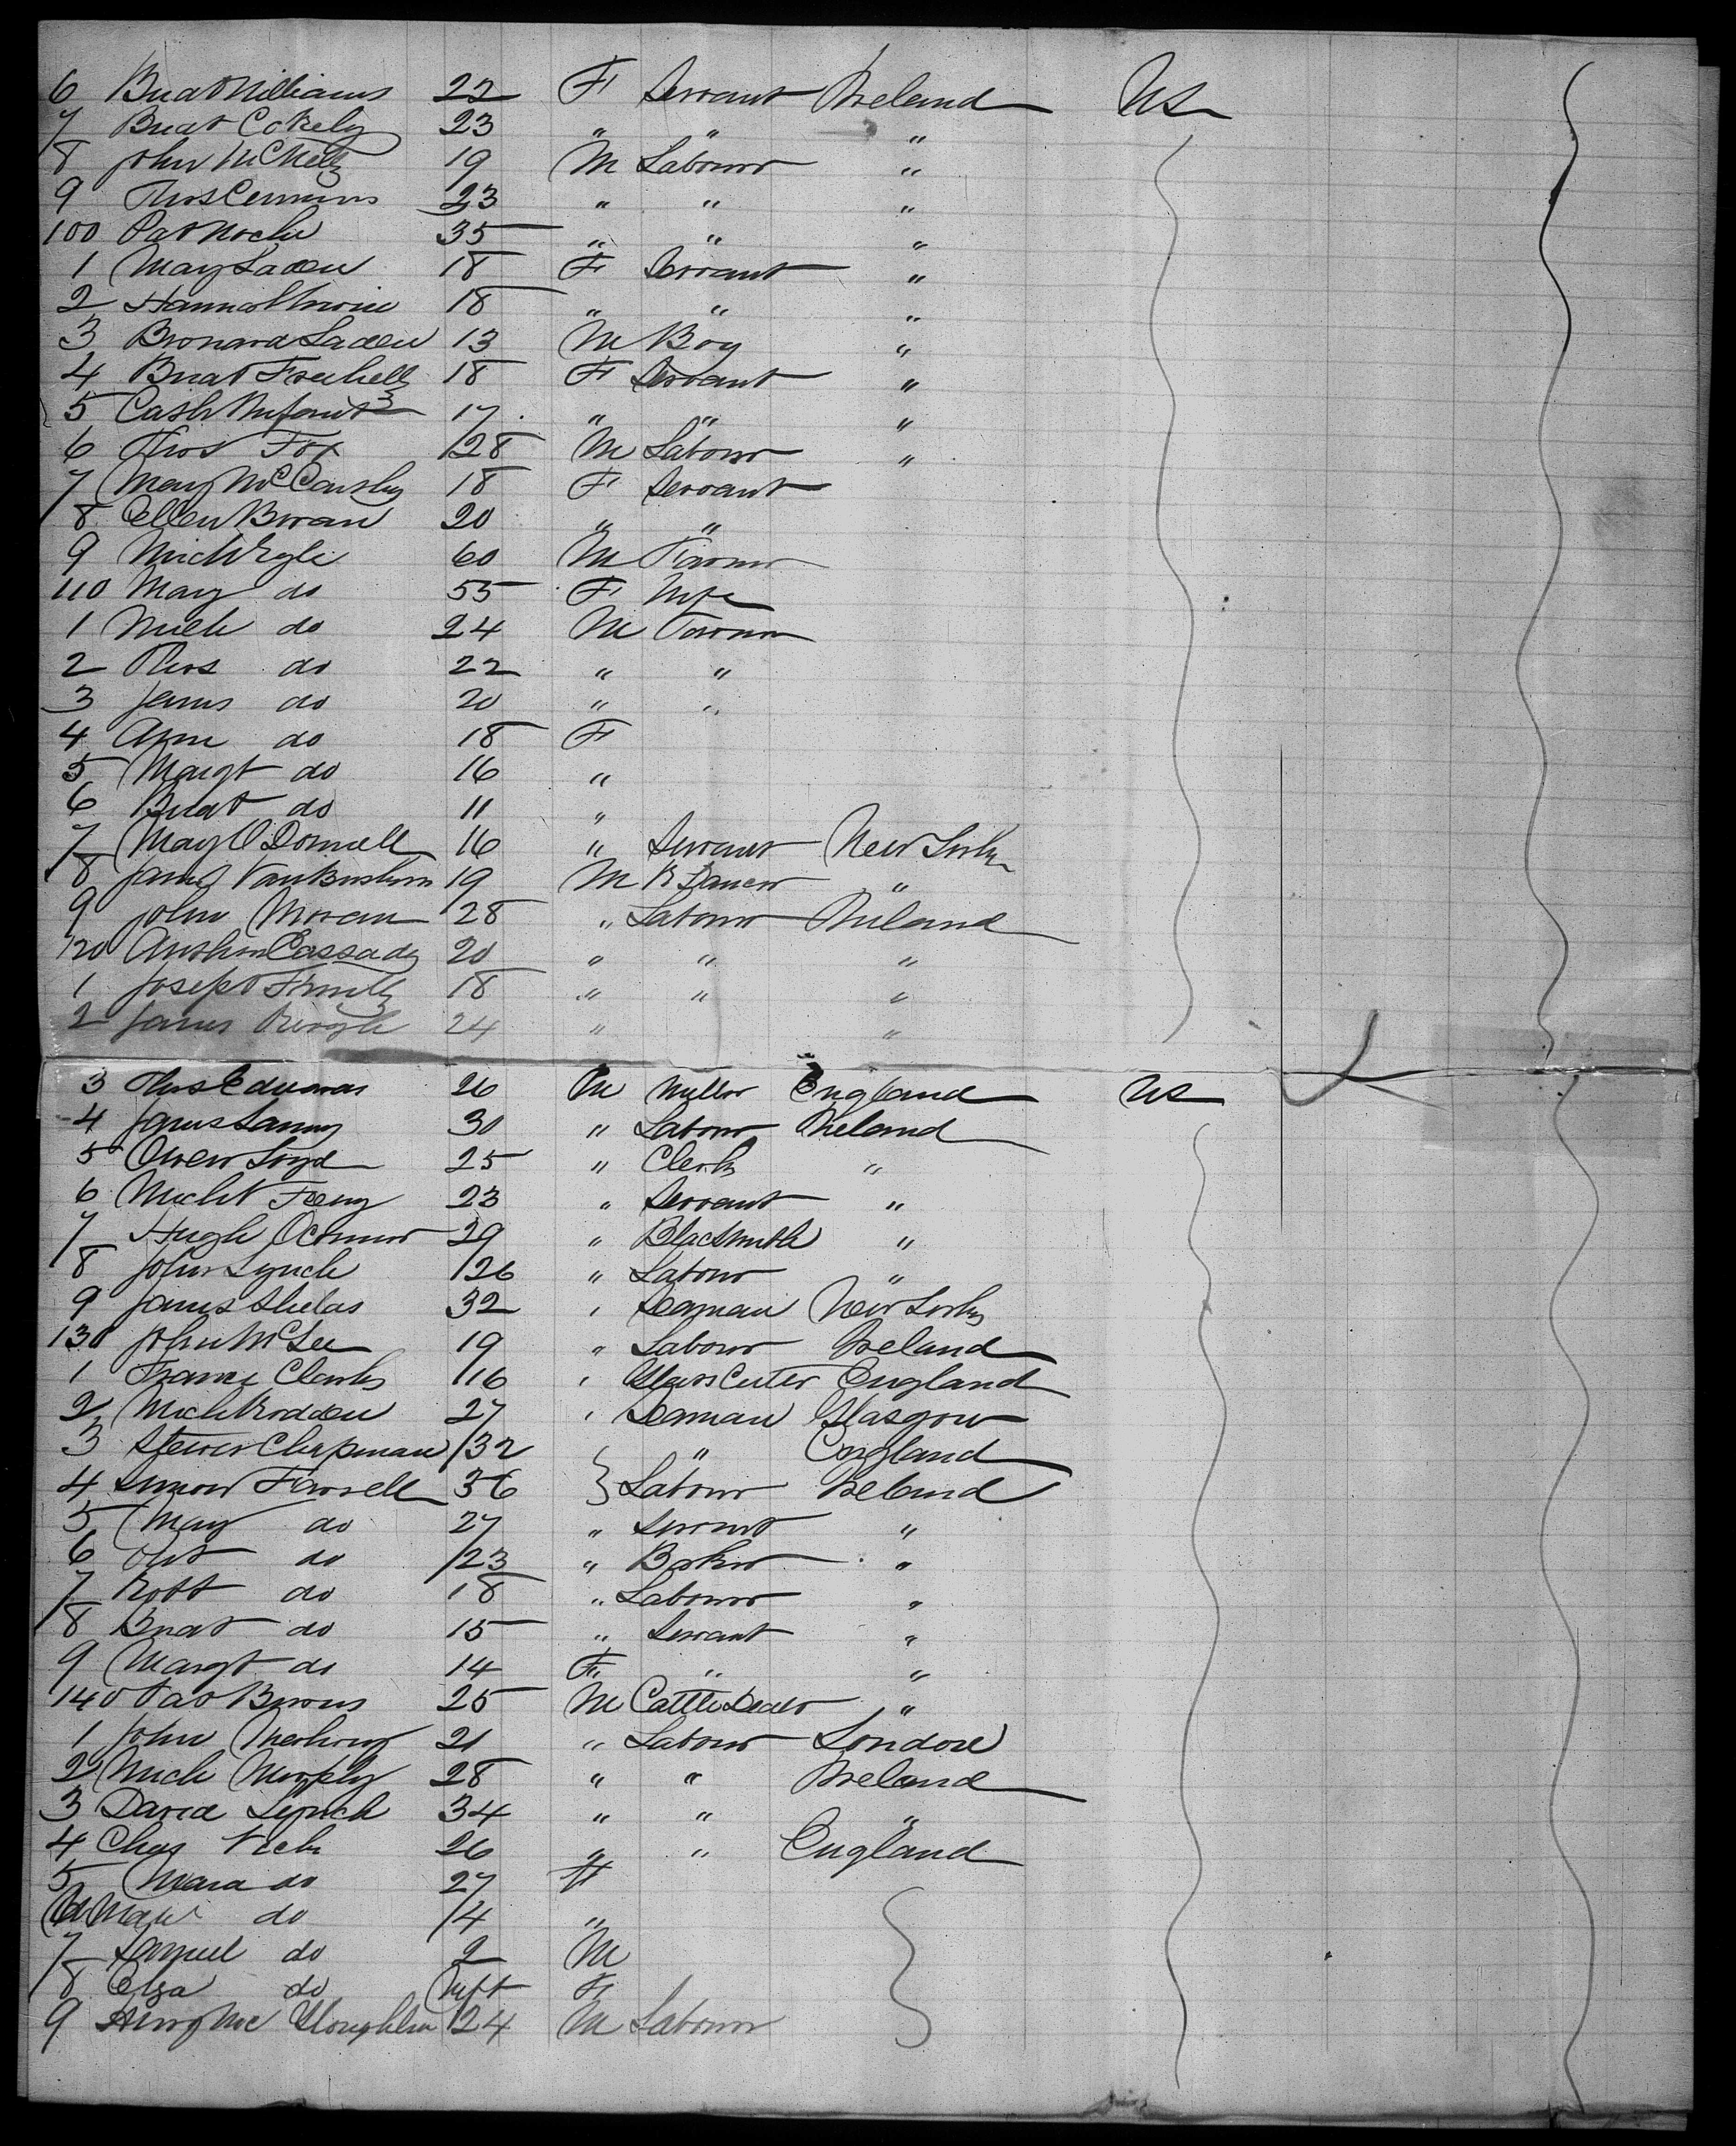 6 Bridt Williams 22 F Servant Ireland US
7 Bridt Cokely 23 " " "
8 John McNelly 19 M Labourr "
9 Thos 23 " " "
100 Pat Roche 35 " " "
1 Mary Laden 18 F Servant "
2 Hannah 18 " " "
3 Bernard Laden 13 M Boy "
4 Bridt Freehelly 18 F Servant "
5 Cath 17 " " "
6 Thos Fox 28 M Labour "
7 Mary McCarthy 18 F Servant
8 Ellen Bran 20 " "
9 Mich 60 M Farmr
110 Mary do 55 F Wife
1 Mich do 24 M Farmr
2 Thos do 22 " "
3 James do 20 " "
4 Ann do 18 F
5 Margt do 16 "
6 Bridt do 11 "
7 Mary O Donnell 16 " Servant New York
8 James Van Buskirk 19 M "
9 John Moran 28 " Labour Ireland
120 Cassady 20 " " "
1 Joseph 18 " " "
2 James 24 " "
3 Thos Edwards 26 M Miller England US
4 James 30 " Labour Ireland
5 Owen Loyd 25 " Clerk "
6 Michl Feeny 23 " Servant "
7 Hugh OConnor 29 " Blacksmith "
8 John Lynch 26 " Labour "
9 James Shields 32 " Seaman New York
130 John McGee 19 " Labour Ireland
1 Francis Clarke 16 " Glass Cutter England
2 Mich Rodden 27 " Seaman Glasgow
3 Steven Chapman 32 " England
4 Simon Farrell 36 Labour Ireland
5 Mary do 27 " Servnt "
6 do 23 " "
7 Robt do 18 " Labourr "
8 Bridt do 15 " Servant "
9 Margt do 14 F " "
140 Pat Burns 25 M Cattle Dealr "
1 John 21 " Labour London
2 Mich Murphy 28 " " Ireland
3 David Lynch 34 " " "
4 Chas 26 " " England
5 Maria do 27 F
6 do 4 "
7 Samuel do 2 M
8 Elza do Inft F
9 Mc 24 M Labour